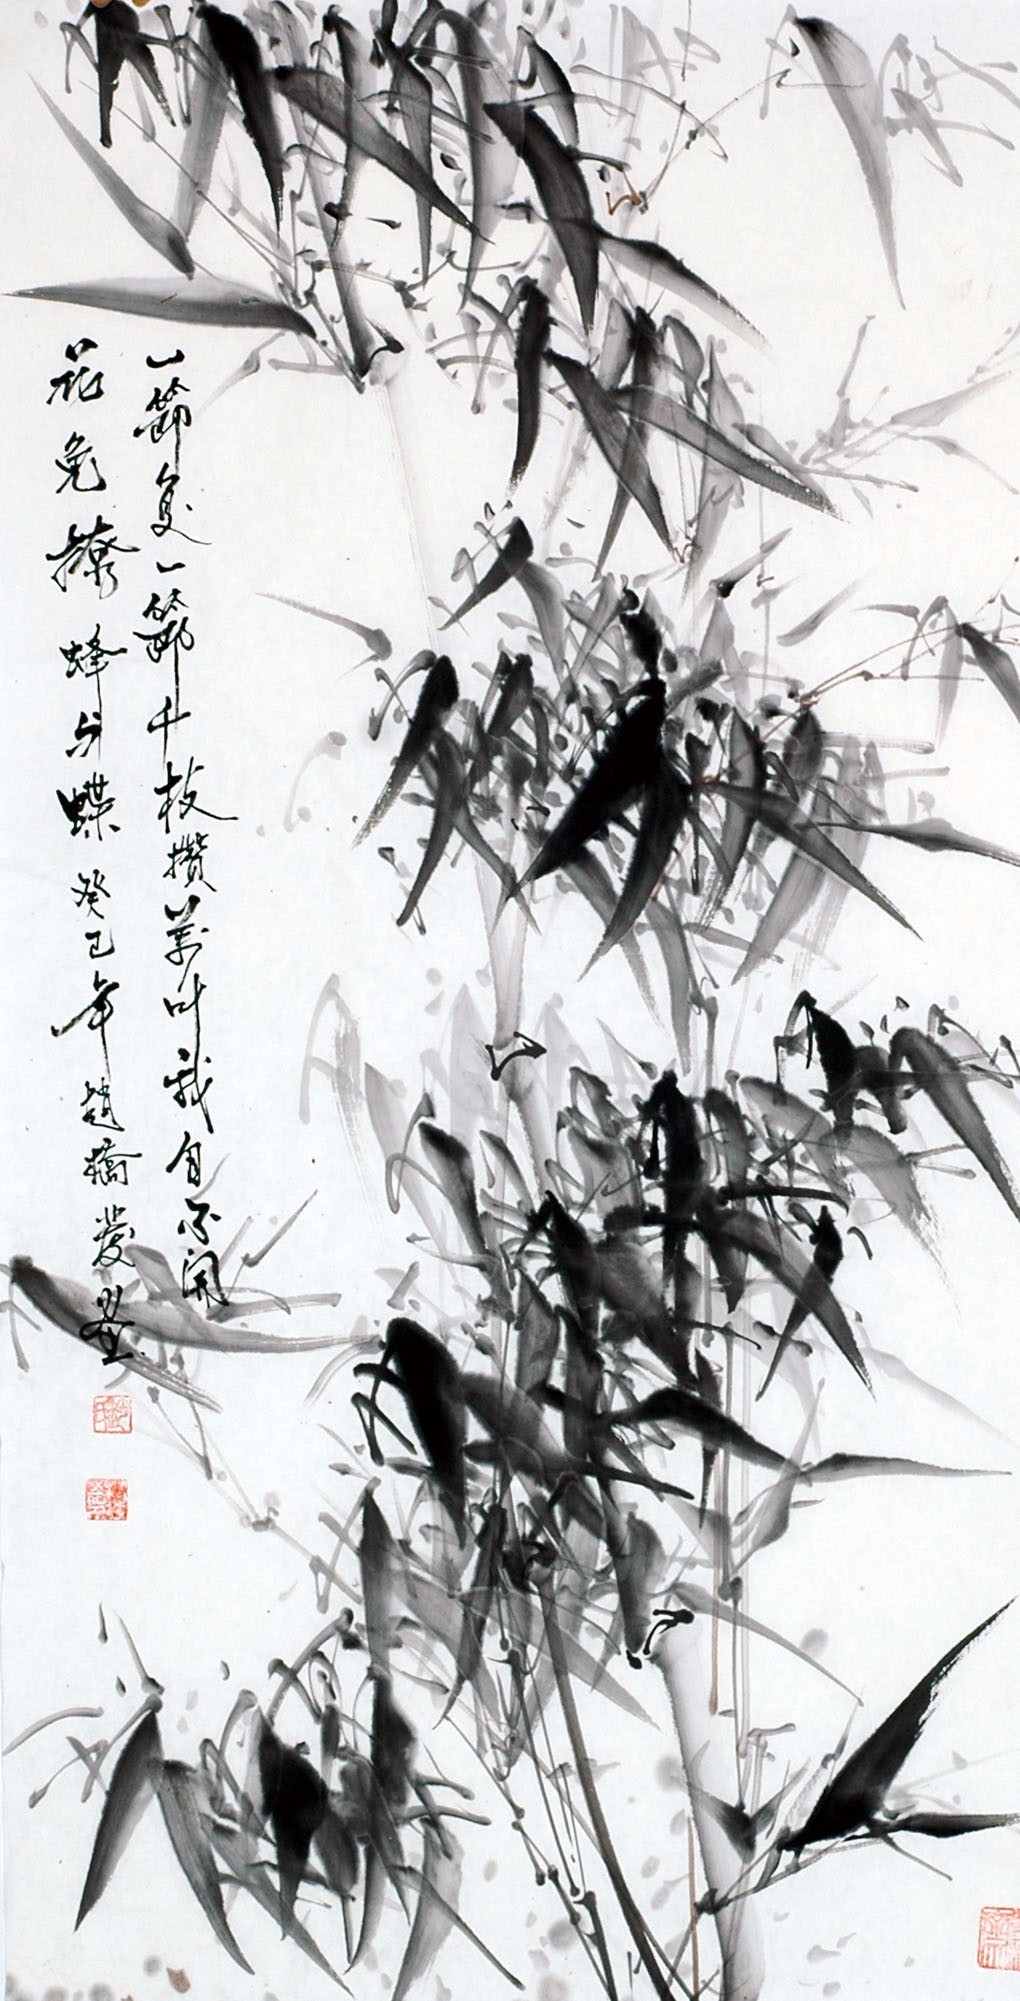 一節复一節千枝攢萬叶我自不開
花免撩蜂与蝶癸巳年趙橋發畫